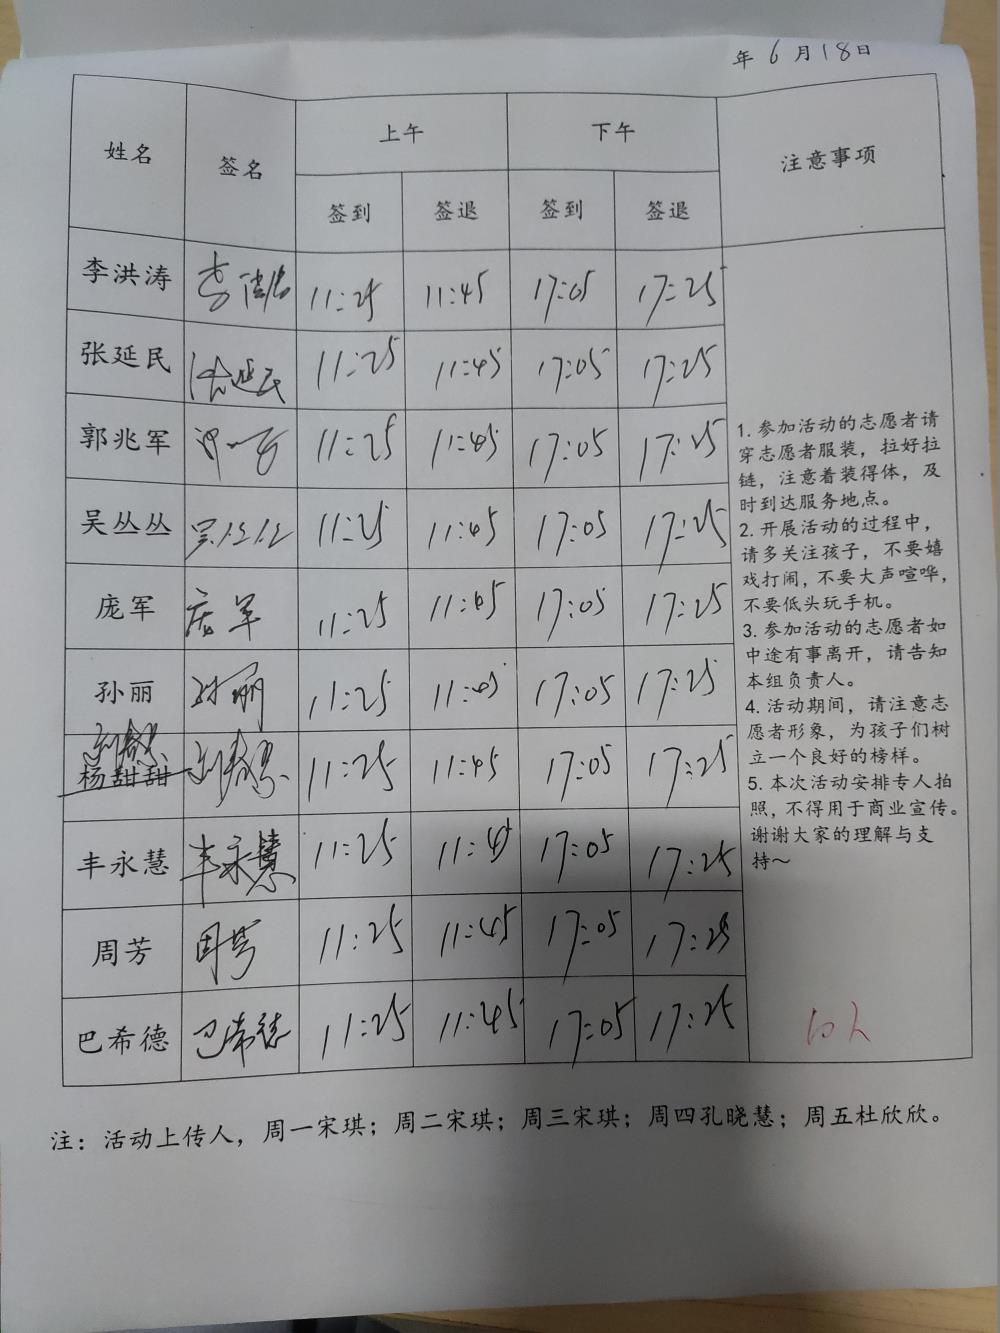 年6月18日
姓名 签名 上午 下午 注意事项
签到 签退 签到 签退
李洪涛 李洪涛 11:25 11:45 17:05 17:25
张延民 张延民 11:25 11:45 17:05 17:25
郭兆军 11:25 11:45 17:05 17:25
吴丛丛 吴丛丛 11:25 11:45 17:05 17:25
庞军 庞军 11:25 11:45 17:05 17:25
孙丽 孙丽 11:25 11:45 17:05 17:25
杨甜甜 11:25 11:45 17:05 17:25
丰永慧 丰永慧 11:25 11:45 17:05 17:25
周芳 周芳 11:25 11:45 17:05 17:25
巴希德 巴希德 11:25 11:45 17:05 17:25
1. 参加活动的志愿者请
穿志愿者服装，拉好拉
链，注意着装得体，及
时到达服务地点。
2. 开展活动的过程中，
请多关注孩子，不要嬉
戏打闹，不要大声喧哗，
不要低头玩手机。
3. 参加活动的志愿者如
中途有事离开，请告知
本组负责人。
4. 活动期间，请注意志
愿者形象，为孩子们树
立一个良好的榜样。
5. 本次活动安排专人拍
照，不得用于商业宣传。
谢谢大家的理解与支
持～
10人
注：活动上传人，周一宋琪；周二宋琪；周三宋琪；周四孔晓慧；周五杜欣欣。